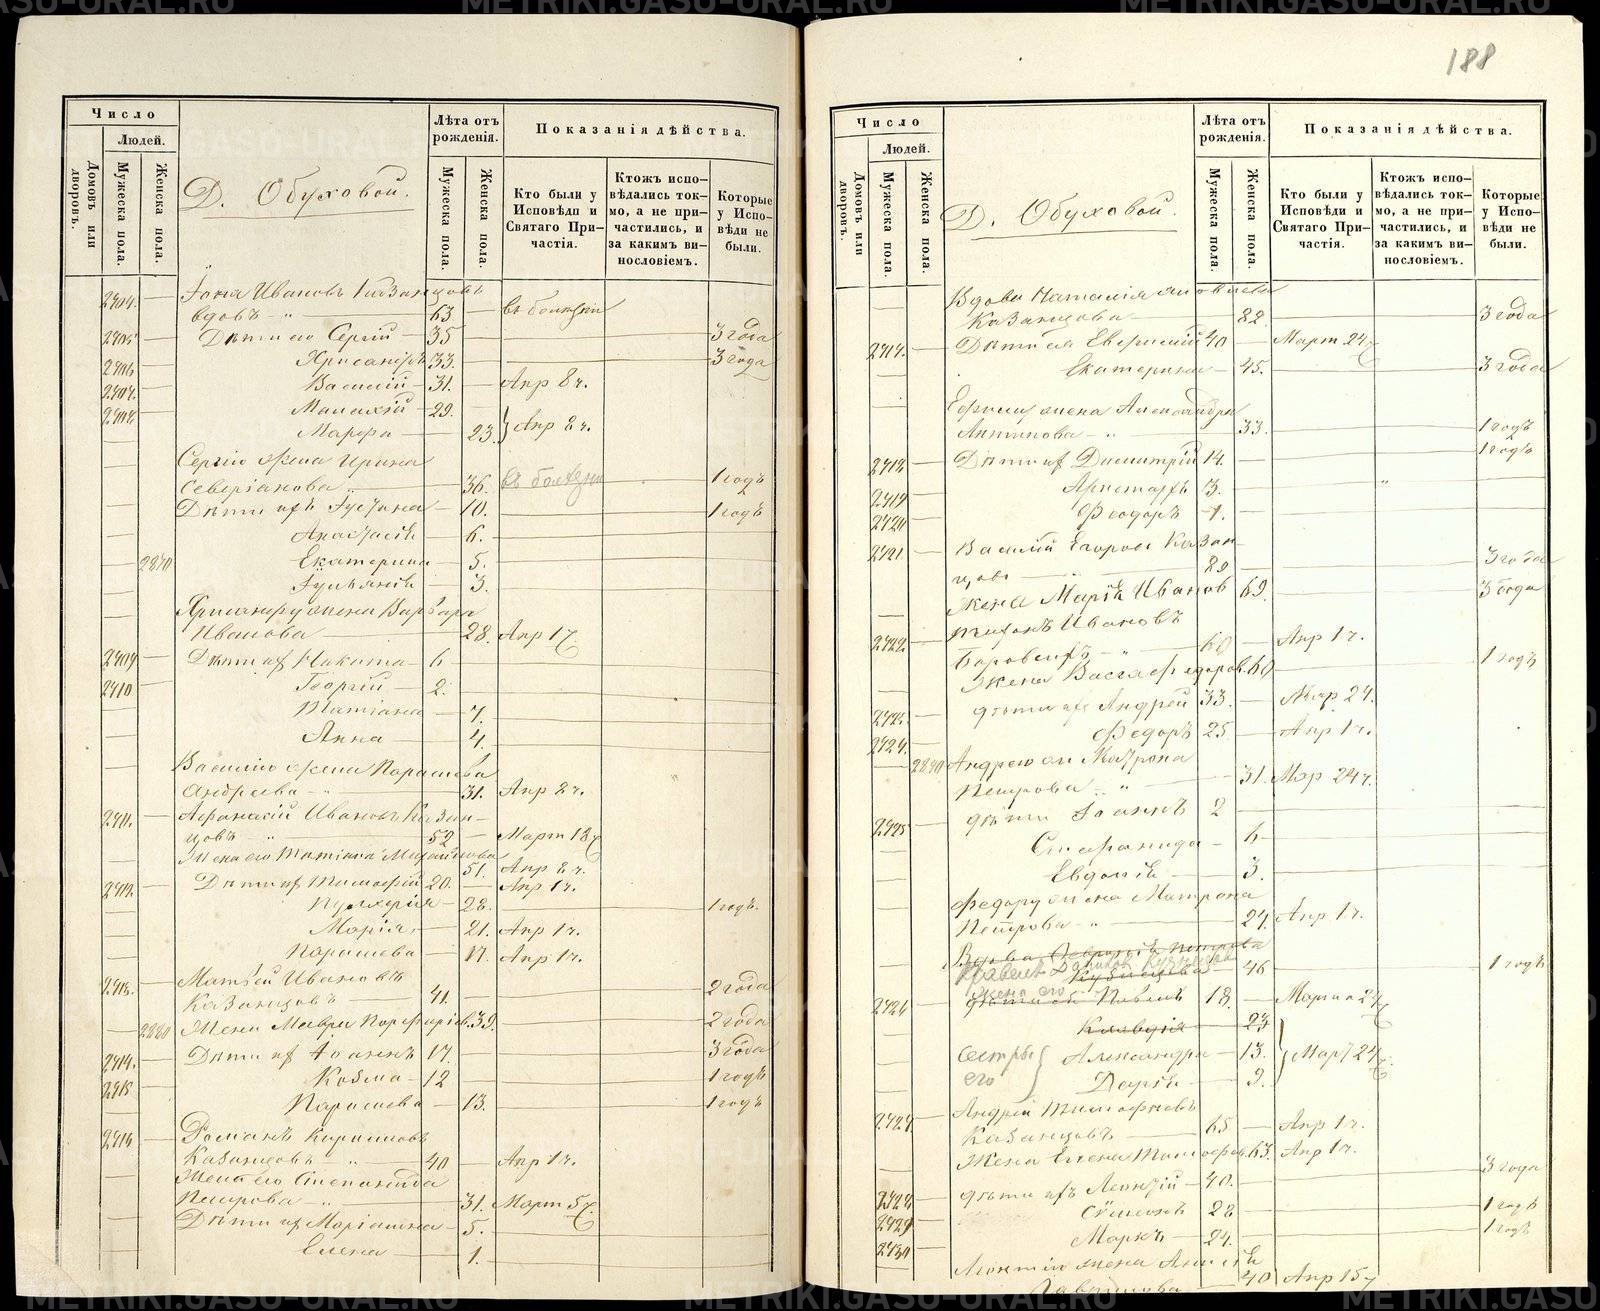 188
Число
Людей.
Домовъ или дворовъ.
Мужеска пола.
Женска пола.
Д. Обуховой.
Лѣта отъ рожденія.
Мужеска пола.
Женска пола.
Показанія дѣйства.
Кто были у Исповѣди и Святаго Причастія.
Ктожъ исповѣдались токмо, а не причастились, и за какимъ винословіемъ.
Которые у Исповѣди не были.
2404. Іона Ивановъ Казанцовъ
вдовъ 63 въ болезни
2405 Дѣти его Сергій 35 3 года
2406 Хрисанфъ 33. 3 года
2407. Василій 31. Апр 8 ч.
2408. Малахій 29.
Марфа 23. Апр 8 ч.
Сергію жена Ирина
Северіанова 36. въ болезни 1 годъ
Дѣти ихъ Іустина 10. 1 годъ
Анастасія 6.
2870 Екатерина 5.
Іуліанія 3.
Хрисанфу жена Варвара
Иванова 28. Апр 17
2409 Дѣти их Никита 6
2410 Георгій 2.
Татіана 7.
Анна 4.
Василію жена Парасцева
Андреева 31. Апр 8 ч.
2411. Афанасій Ивановъ Казан-
цовъ 52 Март 18
Жена его Татіана Михайлова
51. Апр 8 ч.
2412. Дѣти их Тимофей 20. Апр 1 ч.
Пулхерія 28. 1 годъ.
Марія 21. Апр 1 ч.
Парасцева 17. Апр 1 ч.
2413. Матѳей Ивановъ
Казанцовъ 41. 2 года
2880 Жена Мавра Порфиріев. 39. 2 года
2414. Дѣти их Іоаннъ 17. 3 года
2415 Козма 12 1 годъ
Парасцева 13. 1 годъ
2416 Романъ Кириловъ
Казанцовъ 40 Апр 1 ч.
Жена его Степанида
Петрова 31. Март 5
Дѣти их Маріамна 5.
Елена 1.
Число
Людей.
Домовъ или дворовъ.
Мужеска пола.
Женска пола.
Д. Обуховой.
Лѣта отъ рожденія.
Мужеска пола.
Женска пола.
Показанія дѣйства.
Кто были у Исповѣди и Святаго Причастія.
Ктожъ исповѣдались токмо, а не причастились, и за какимъ винословіемъ.
Которые у Исповѣди не были.
Вдова Наталія
Казанцова 82. 3 года
2417. Дѣти ея 40 Март 24
Екатерина 45. 3 года
жена Александра
Антипова 33. 1 годъ
2418. Дѣти их Димитрій 14. 1 годъ
2419 Аристархъ 3.
2420 Феодоръ 1.
2421 Василій Егоровъ Казан-
цовъ 89 3 года
Жена Марія Иванов 69. 3 года
Тихонъ Ивановъ
2422. 60 Апр 1 ч.
Жена Васса Федоров. 60 1 годъ
2423. дѣти их Андрей 33. Мар 24.
2424. Федоръ 25 Апр 1 ч.
2890 Андрею жен Матрона
Петрова 31. Мар 24 ч.
2425 дѣти Іоаннъ 2
Стефанида 6
Евдокія 3.
Федору жена Матрона
Петрова 27. Апр 1 ч.
Вдова Петрова
Кузнецова 46 1 годъ
жена его
2426 Павелъ 18. Марта 24
Клавдія 23
сестры его Александра 13. Март 24
Дарія 9.
2427. Андрей Тимофеевъ
Казанцовъ 65 Апр 1 ч.
Жена Елена Тимофеев. 63. Апр 1 ч.
2428 дѣти ихъ Леонтій 40. 3 года
2429 Сѵмеонъ 28 1 годъ
2430 Маркъ 24. 1 годъ
Леонтію жена Анисія
Гаврилова 40 Апр 15
METRIKI.GASU-URAL.RU